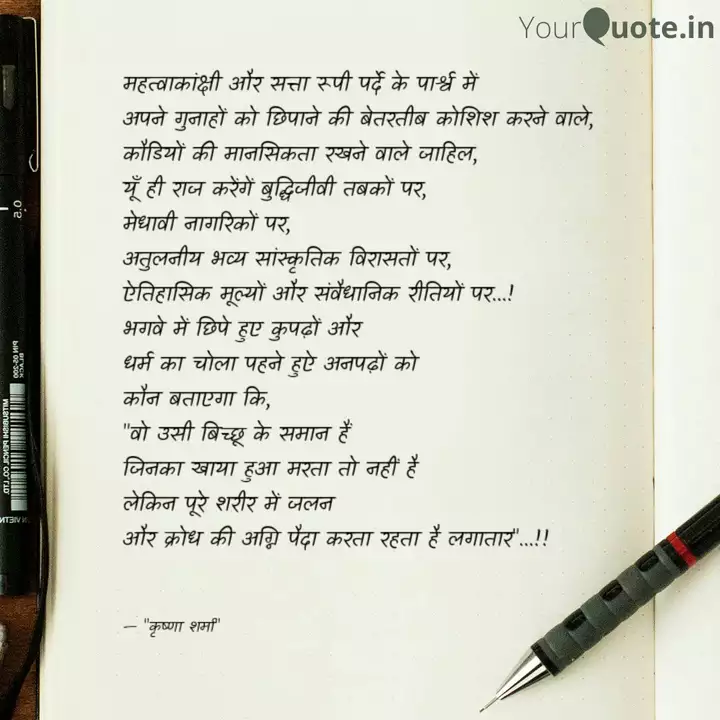 YourQuote.in
महत्वाकांक्षी और सत्ता रूपी पर्दे के पार्श्व में
अपने गुनाहों को छिपाने की बेतरतीब कोशिश करने वाले,
कौडियों की मानसिकता रखने वाले जाहिल,
यूँ ही राज करेंगें बुद्धिजीवी तबकों पर,
मेधावी नागरिकों पर,
अतुलनीय भव्य सांस्कृतिक विरासतों पर,
ऐतिहासिक मूल्यों और संवैधानिक रीतियों पर...!
भगवे में छिपे हुए कुपढ़ों और
धर्म का चोला पहने हुऐ अनपढ़ों को
कौन बताएगा कि,
"वो उसी बिच्छू के समान हैं
जिनका खाया हुआ मरता तो नहीं है
लेकिन पूरे शरीर में जलन
और क्रोध की अग्नि पैदा करता रहता है लगातार"...!!
– "कृष्णा शर्मा"
0.5
PIN 05-200
BLACK
MITSUBISHI PENCIL CO. LTD.